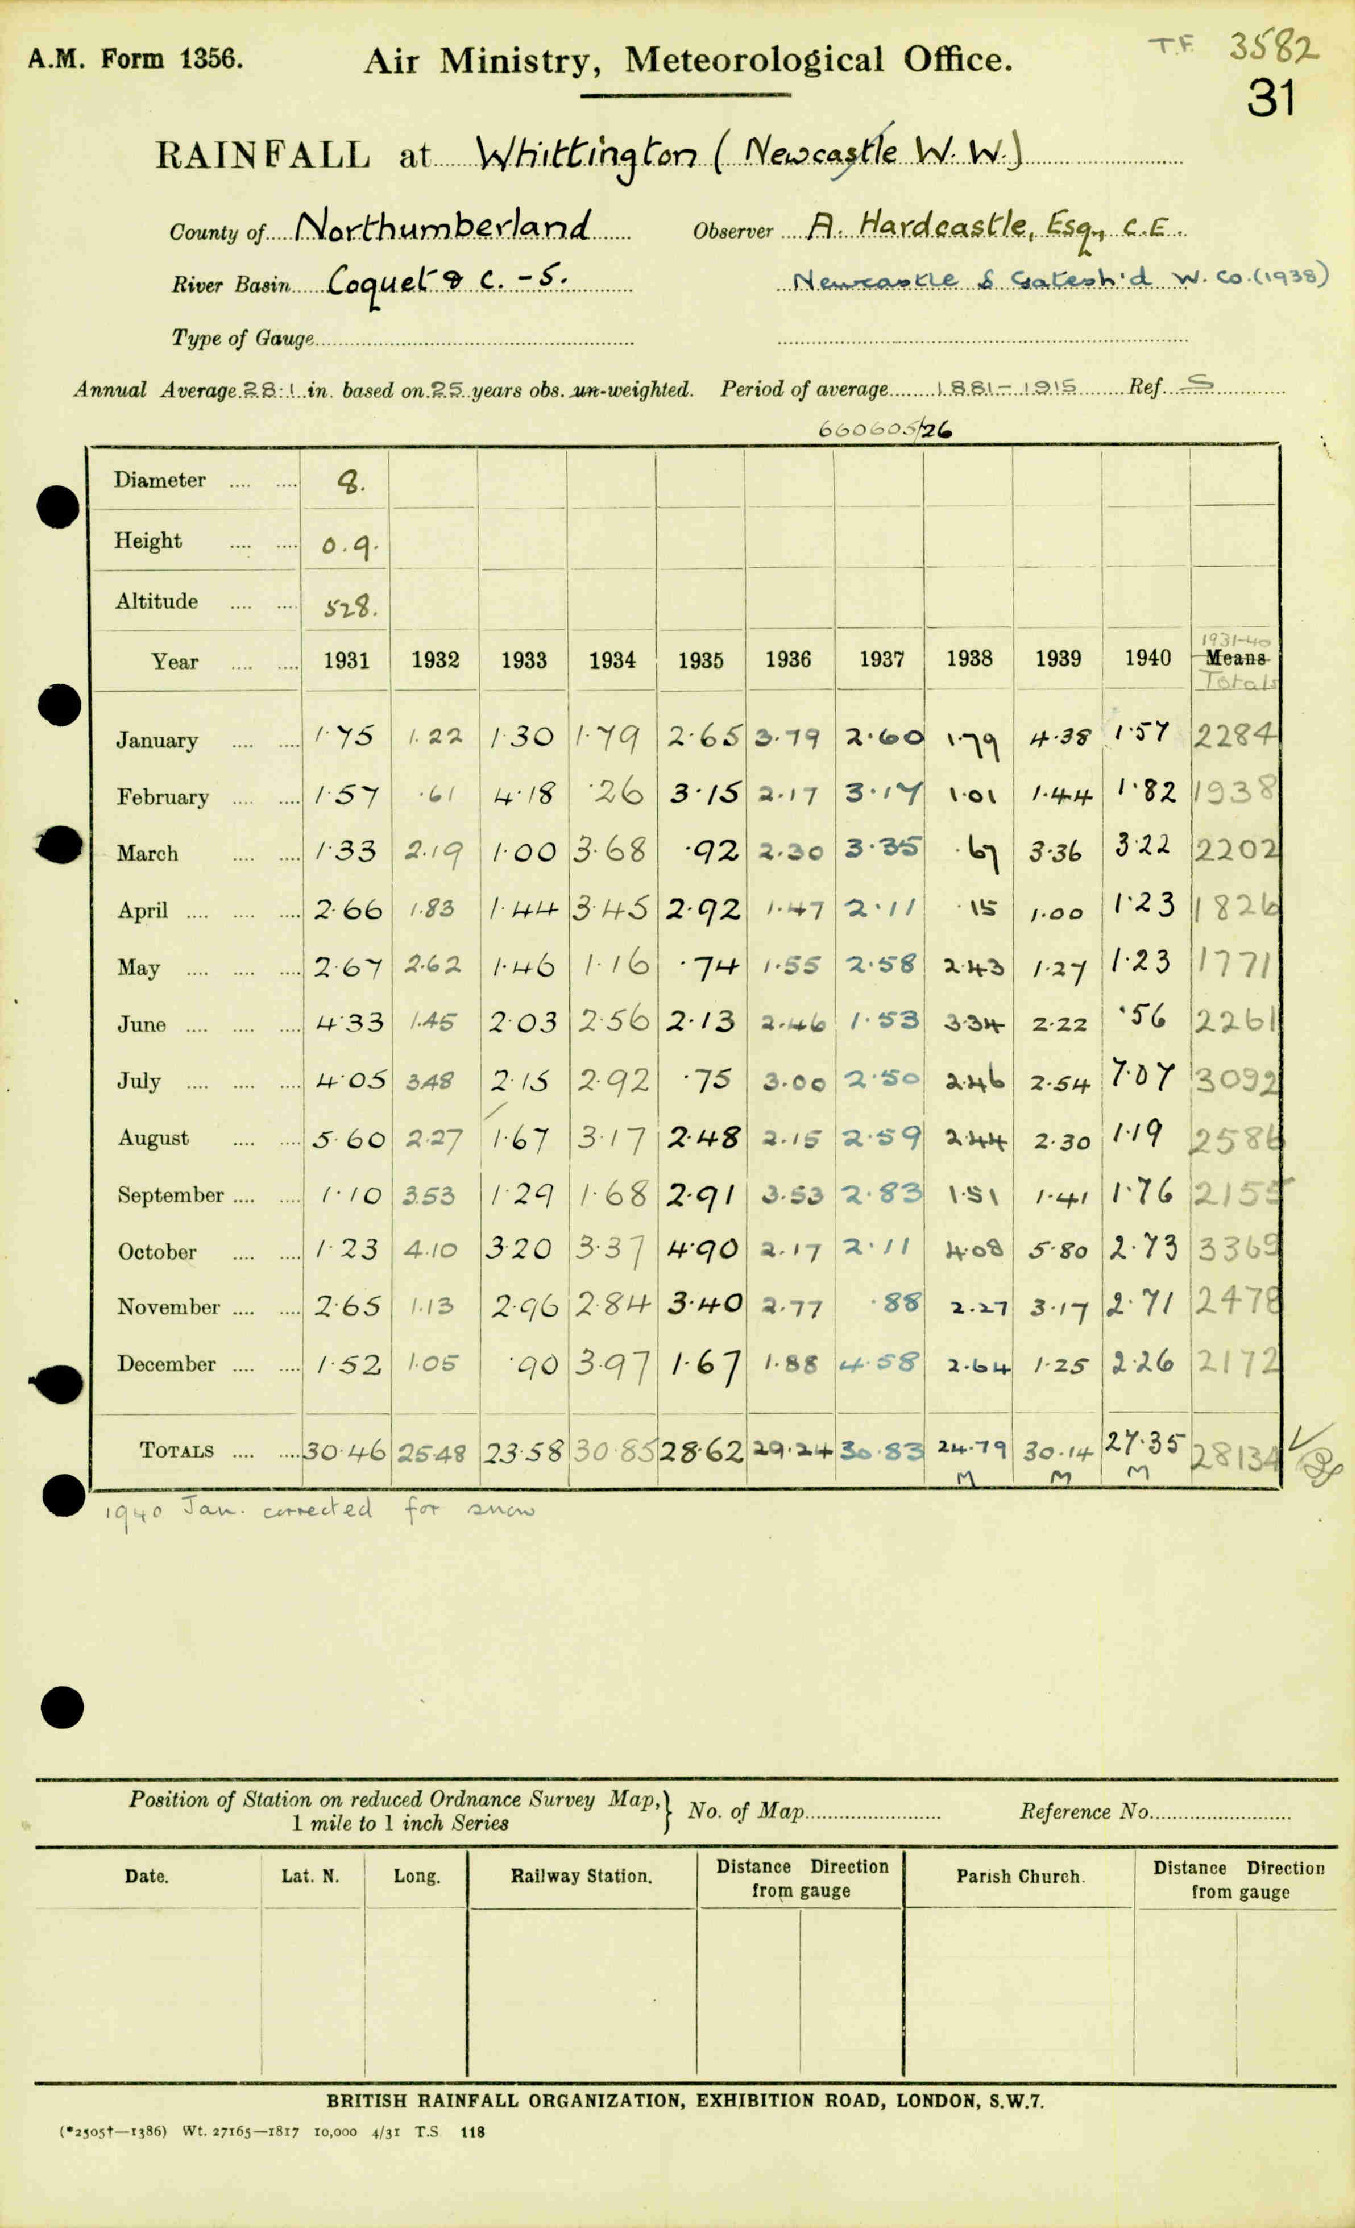 A.M. Form 1356.
Air Ministry, Meteorological Office.
T.F. 3582
31
RAINFALL at Whittington (Newcastle W. W.)
County of Northumberland Observer A. Hardcastle, Esq., C.E.
River Basin Coquet & C. - S. Newcastle & Gatesh'd W. Co. (1938)
Type of Gauge
Annual Average 28.1 in. based on 25 years obs. un-weighted. Period of average 1881-1915 Ref. S
660605/26
Diameter 8.
Height 0.9.
Altitude 528.
1931-40
Year 1931 1932 1933 1934 1935 1936 1937 1938 1939 1940 Means
Totals
January 1.75 1.22 1.30 1.79 2.65 3.79 2.60 1.79 4.38 1.57 2284
February 1.57 .61 4.18 .26 3.15 2.17 3.17 1.01 1.44 1.82 1938
March 1.33 2.19 1.00 3.68 .92 2.30 3.35 .67 3.36 3.22 2202
April 2.66 1.83 1.44 3.45 2.92 1.47 2.11 .15 1.00 1.23 1826
May 2.67 2.62 1.46 1.16 .74 1.55 2.58 2.43 1.27 1.23 1771
June 4.33 1.45 2.03 2.56 2.13 2.46 1.53 3.34 2.22 .56 2261
July 4.05 3.48 2.15 2.92 .75 3.00 2.50 2.46 2.54 7.07 3092
August 5.60 2.27 1.67 3.17 2.48 2.15 2.59 2.44 2.30 1.19 2586
September 1.10 3.53 1.29 1.68 2.91 3.53 2.83 1.51 1.41 1.76 2155
October 1.23 4.10 3.20 3.37 4.90 2.17 2.11 4.08 5.80 2.73 3369
November 2.65 1.13 2.96 2.84 3.40 2.77 .88 2.27 3.17 2.71 2478
December 1.52 1.05 .90 3.97 1.67 1.88 4.58 2.64 1.25 2.26 2172
TOTALS 30.46 25.48 23.58 30.85 28.62 29.24 30.83 24.79 30.14 27.35 28134
M M M
1940 Jan. corrected for snow
Position of Station on reduced Ordnance Survey Map, 1 mile to 1 inch Series } No. of Map Reference No.
Date. Lat. N. Long. Railway Station. Distance Direction from gauge Parish Church. Distance Direction from gauge
BRITISH RAINFALL ORGANIZATION, EXHIBITION ROAD, LONDON, S.W.7.
(*2505†—1386) Wt. 27165—1817 10,000 4/31 T.S. 118